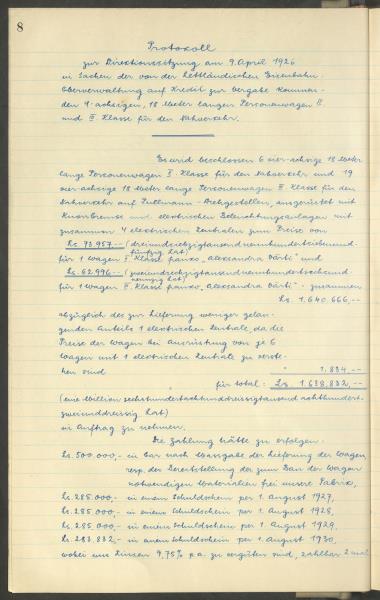 8
Protokoll
zur Direktionssitzung am 9. April 1926
in Sachen der von der Lettländischen Eisenbahn-
Oberverwaltung auf Kredit zur Vergabe kommen-
den 4-achsigen, 18 Meter langen Personenwagen II.
und III. Klasse für den Nahverkehr.
Es wird beschlossen 6 vier-achsige 18 Meter
lange Personenwagen II. Klasse für den Nahverkehr und 19
vier-achsige 18 Meter lange Personenwagen III. Klasse für den
Nahverkehr auf Pullmann-Drehgestellen, ausgerüstet mit
Knorrbremse und elektrischen Beleuchtungsanlagen mit
zusammen 4 elektrischen Zentralen zum Preise von
Ls. 73.957.-- (dreiundsiebzigtausend neunhundertsiebenund-
fünfzig Lat)
für 1 Wagen II. Klasse franko „Aleksandra Vārti" und
Ls. 62.996.-- (zweiundsechzigtausendneunhundertsechsund-
neunzig Lat)
für 1 Wagen III. Klasse franko „Aleksandra Vārti" - zusammen
Ls. 1.640.666,--
abzüglich des zur Lieferung weniger gelan-
genden Anteils 1 elektrischen Zentrale, da die
Preise der Wagen bei Ausrüstung von je 6
Wagen mit 1 elektrischen Zentrale zu verste-
hen sind " 1.834.--
für total: Ls. 1.638.832.--
(eine Million sechshundertachtunddreissigtausend achthundert-
zweiunddreissig Lat)
in Auftrag zu nehmen.
Die Zahlung hätte zu erfolgen:
Ls. 500.000,- in bar nach Massgabe der Lieferung der Wagen,
resp. der Bereitstellung der zum Bau der Wagen
notwendigen Materialien frei unsere Fabrik,
Ls. 285.000,- in einem Schuldschein per 1. August 1927,
Ls. 285.000,- in einem Schuldschein per 1. August 1928,
Ls. 285.000,- in einem Schuldschein per 1. August 1929,
Ls. 283.832,- in einem Schuldschein per 1. August 1930,
wobei uns Zinsen 9,75% p.a. zu vergüten sind, zahlbar 2 mal